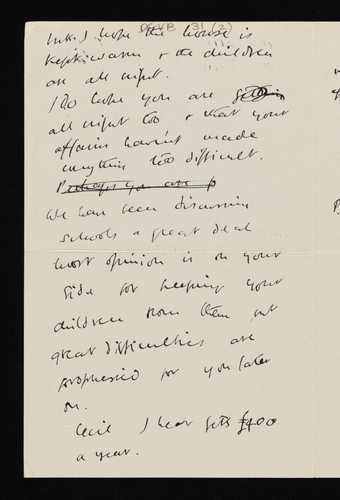 I hope the house is
kept warm & the children
are all right.
I do hope you are
all right too & that your
affairs haven't made
anything too difficult.
Perhaps you are p
We have been discussing
schools a great deal
most opinion is on your
side for keeping your
children from them but
great difficulties are
prophesied for you later
on.
Cecil I hear gets £400
a year.